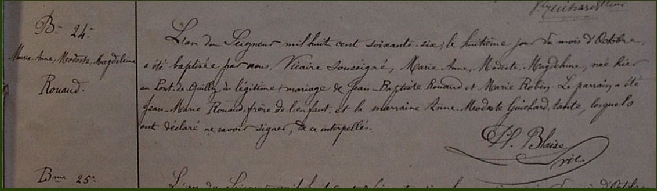 Guichard
Bme 24e
Marie Anne Modeste Magdeleine
Rouaud.
L'an du Seigneur mil huit cent soixante six, le huitième jour du mois d'Octobre,
a été baptisée par nous Vicaire soussigné, Marie Anne, Modeste Magdeleine, née hier
au Port de Guilly, du légitime mariage de Jean Baptiste Rouaud et Marie Robin. Le parrain a été
Jean Marie Rouaud, frère de l'enfant, et la marraine Anne Modeste Guichard, tante, lesquels
ont déclaré ne savoir signer, de ce interpellés.
Blaise
vic.
Bme 25e
L'an du Seigneur mil huit cent soixante six,